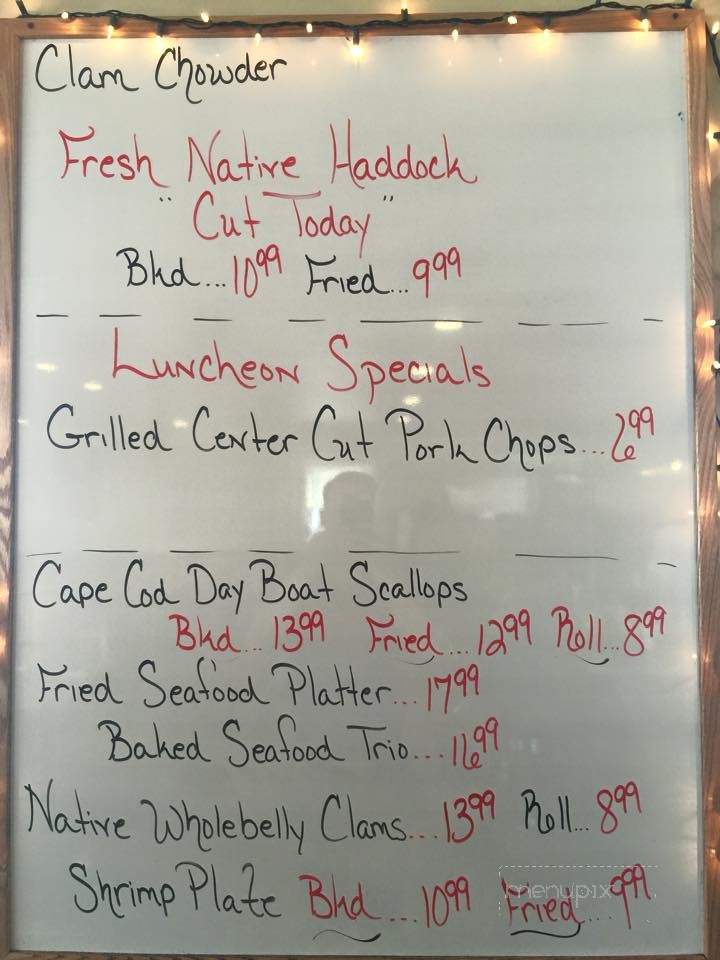 Clam Chowder
Fresh Native Haddock
"Cut Today"
Bkd...10 99 Fried...9 99
Luncheon Specials
Grilled Center Cut Pork Chops...6 99
Cape Cod Day Boat Scallops
Bkd...13 99 Fried...12 99 Roll...8 99
Fried Seafood Platter...17 99
Baked Seafood Trio...16 99
Native Wholebelly Clams...13 99 Roll...8 99
Shrimp Plate Bkd...10 99 Fried...9 99
menupix